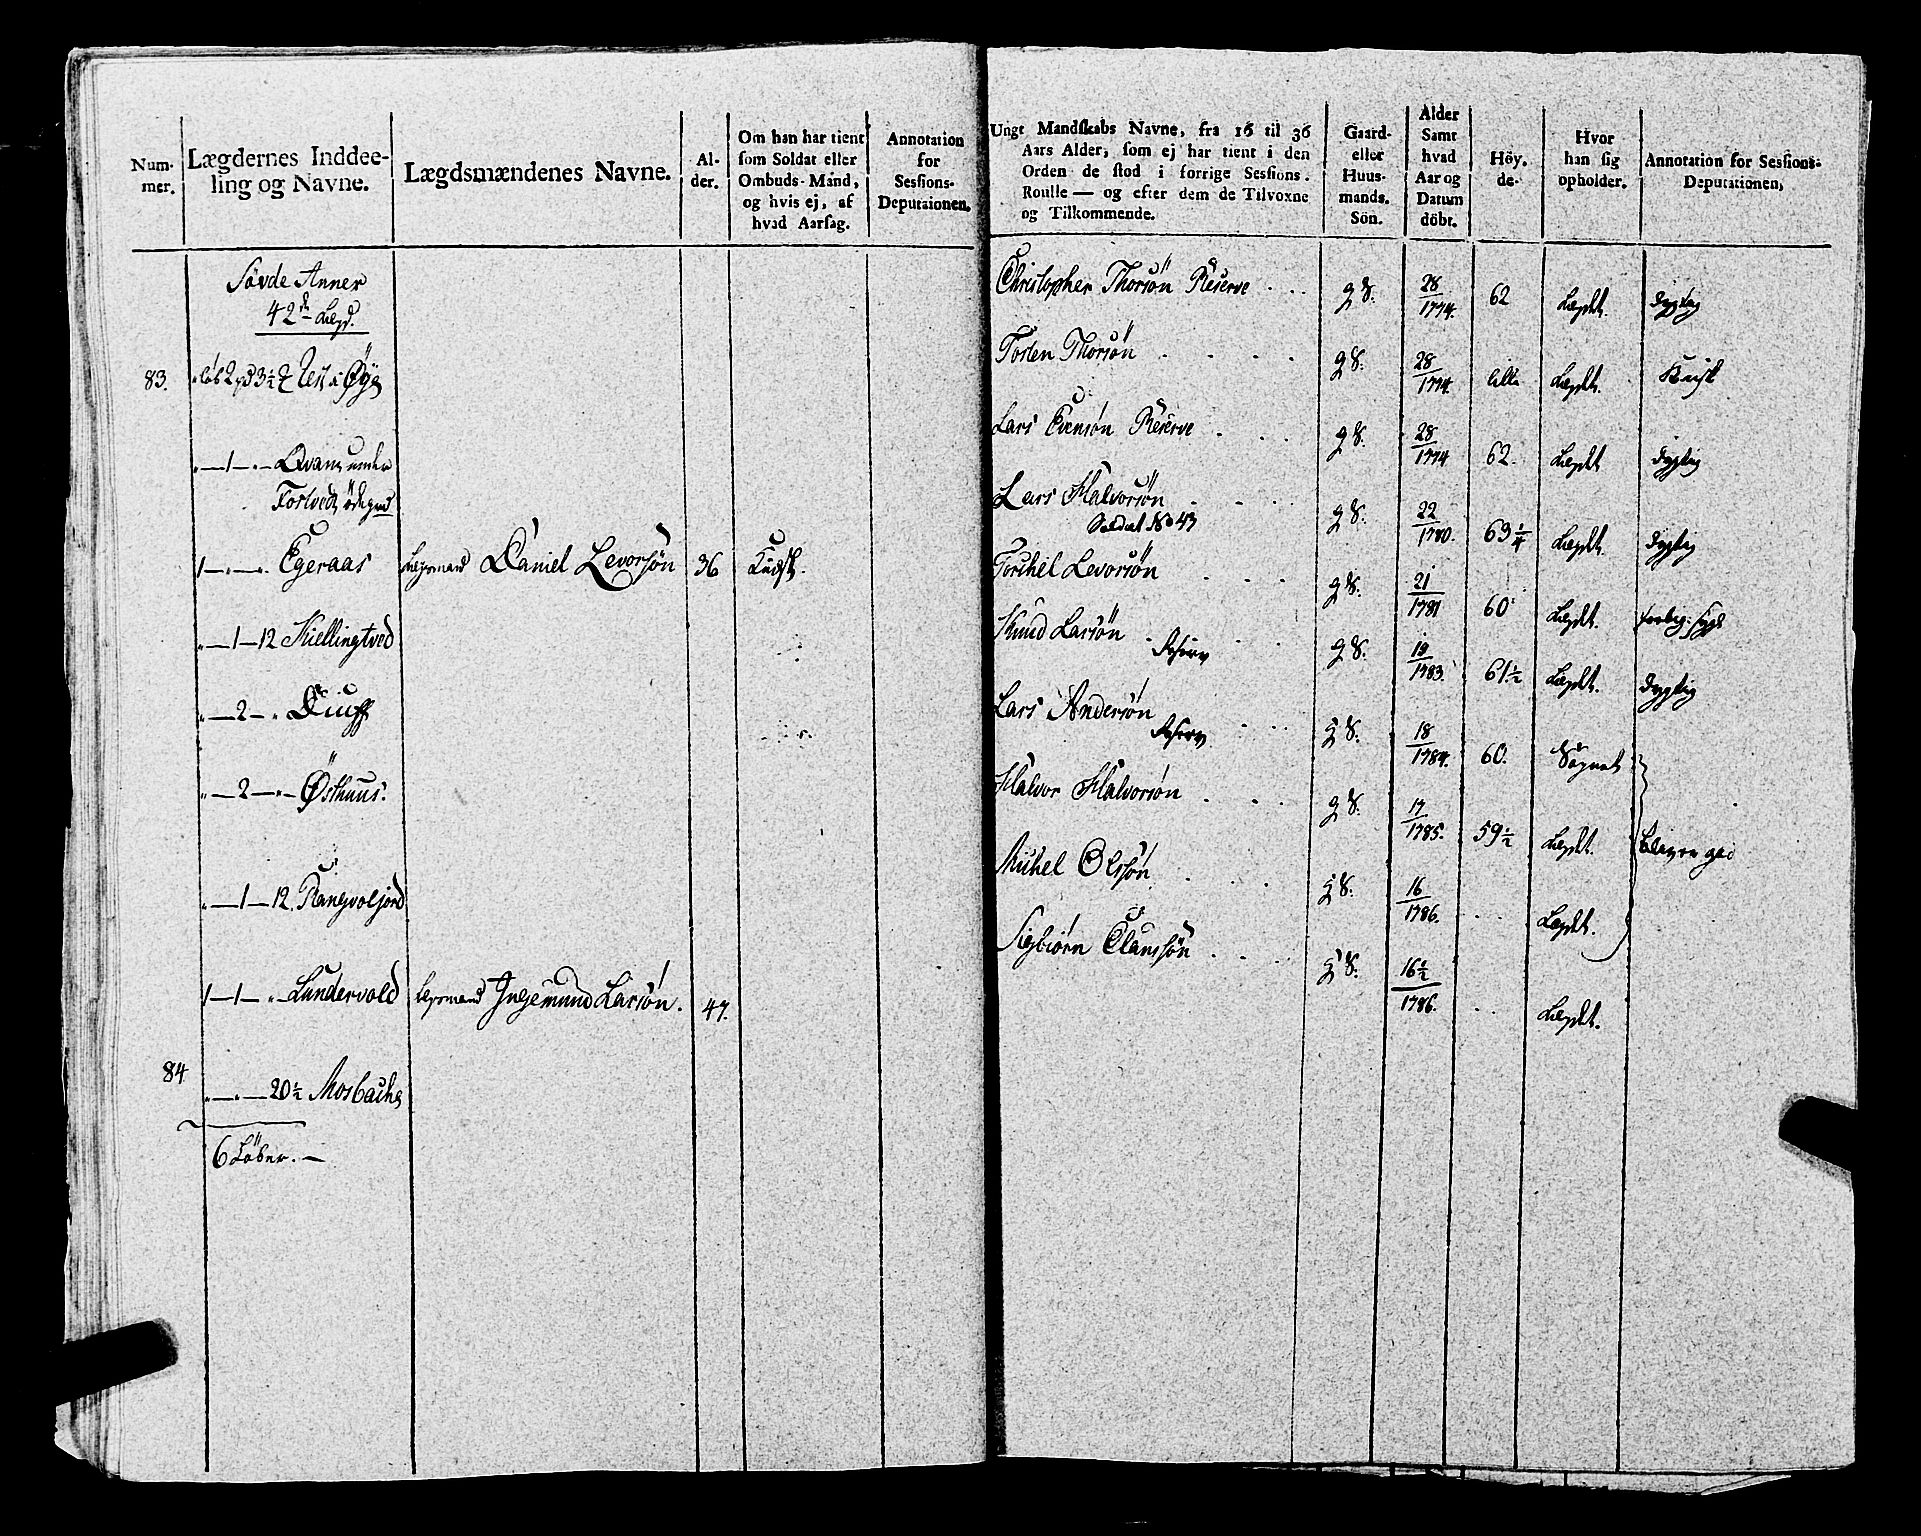 Num-
mer.
Lægdernes Inddee-
ling og Navne.
Lægdsmændenes Navne.
Al-
der.
Om han har tient
som Soldat eller
Ombuds-Månd,
og hvis ej, af
hvad Aarsag.
Annotation
for
Sessions-
Deputaionen.
Søvde Anner
42d Lægd.
83.
Øÿe
1 Qvane under
Tostvedt ödegrd
1 Egeraas
Daniel Levorsön 36
1 12 Kiellingtved
2
2 Østhuus.
1 12. Rangvoljord
1 1 Lundervold
Ingemund Larsön. 47.
84
20½ Mosbache
6 Löber.
Ungt Mandskabs Navne, fra 16 til 36
Aars Alder, som ej har tient i den
Orden de stod i forrige Sessions-
Roulle — og efter dem de Tilvoxne
og Tilkommende.
Gaard-
eller
Huus-
mands.
Sön.
Alder
Samt
hvad
Aar og
Datum
döbt.
Höy.
de.
Hvor
han sig
opholder.
Annotation for Sessions-
Deputationen,
Christopher Thorsön Reserve . . . g S. 28/1774. 62 Lægdet. dygtig
Tosten Thorsön . . . . g S. 28/1774. Lægdet.
Lars Evensön Reserve . . . g S. 28/1774 62. Lægdet dygtig
Lars Halvorsön . . . g S. 22/1780. 63¼ Lægdet. dygtig
Soldat No 43
Torchel Levorsön . . . g S. 21/1781 60 Lægdet.
Knud Larsön . . . g S. 19/1783. 61½ Lægdet. dygtig
Reserv
Lars Andersön . . . S. 18/1784. 60. Sognet
Reserv
Halvor Halvorsön . . . g S. 17/1785. 59½ Lægdet.
Michel Olssön . . . S. 16/1786. . . Lægdet.
Sigbiørn Claussön . . . S. 16½/1786. . . Lægdet.